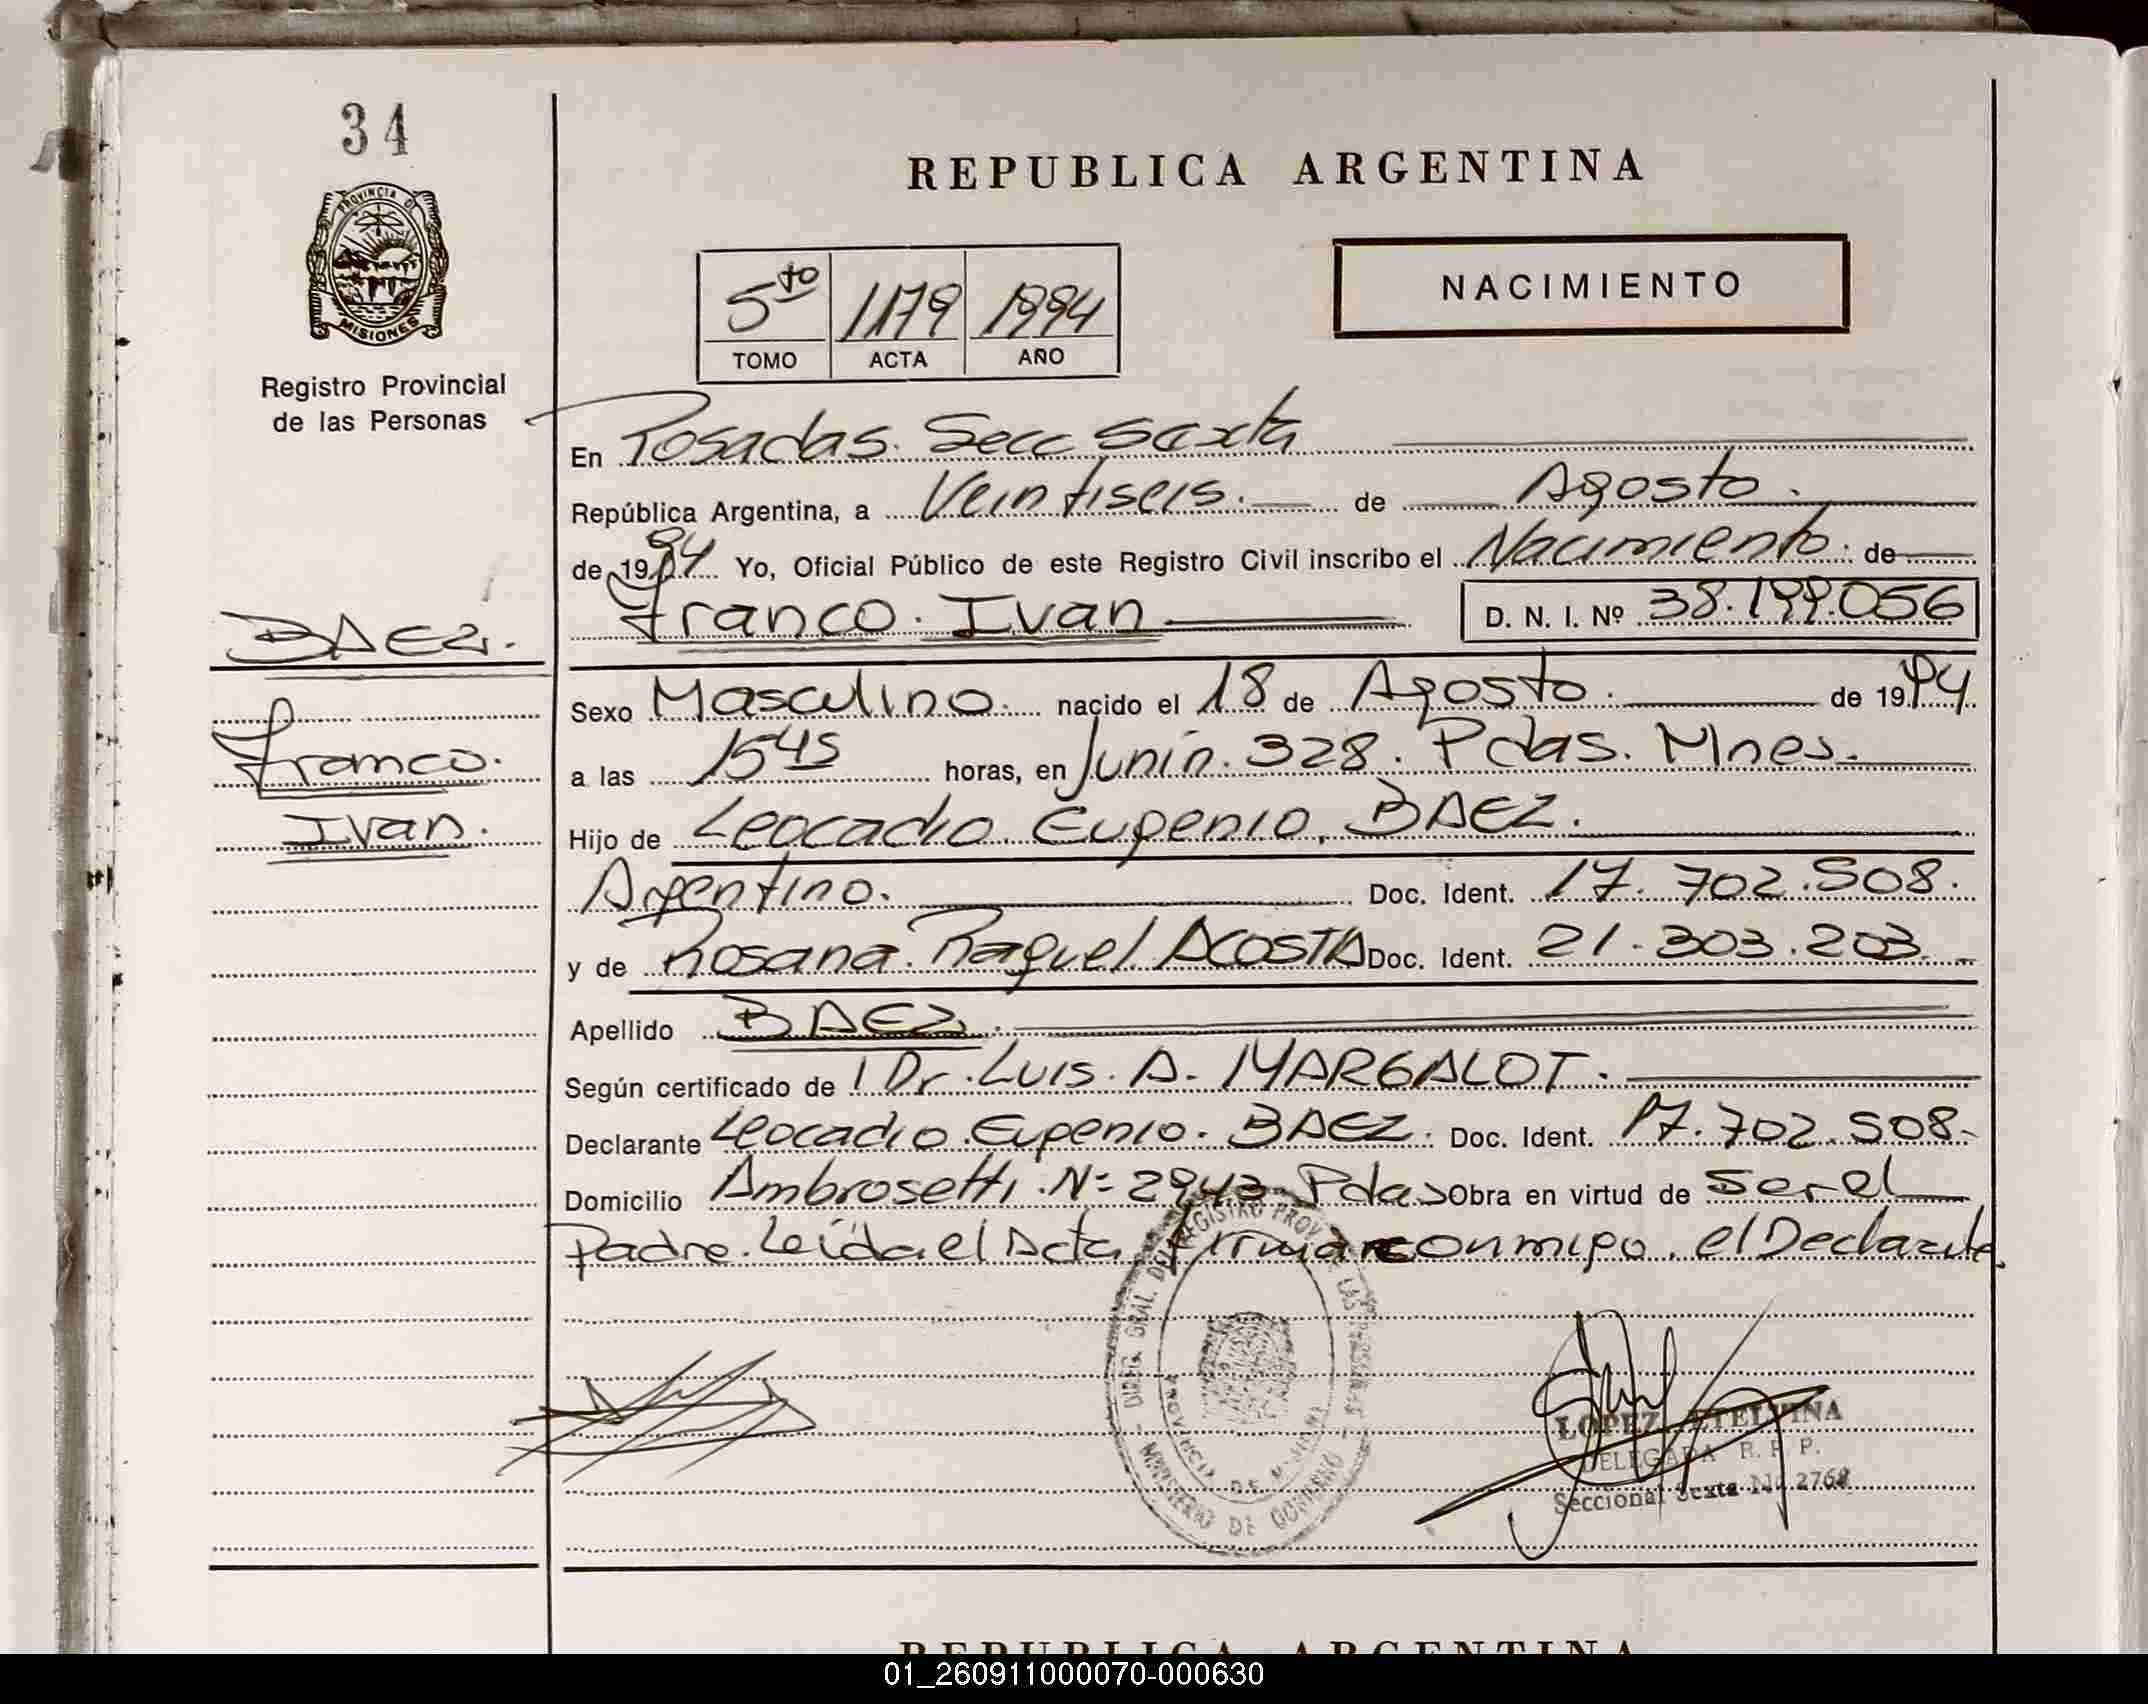 34
REPUBLICA ARGENTINA
PROVINCIA DE
MISIONES
Registro Provincial
de las Personas
NACIMIENTO
5to 1179 1994
TOMO ACTA AÑO
En Posadas. Secc Sexta
República Argentina, a Veintiseis. de Agosto.
de 1994 Yo, Oficial Público de este Registro Civil inscribo el Nacimiento. de
Franco. Ivan D. N. I. Nº 38.199.056
BAEZ.
Franco.
Ivan.
Sexo Masculino. nacido el 18 de Agosto. de 1994.
a las 1545 horas, en Junín. 328. Pdas. Mnes.
Hijo de Leocadio Eugenio, BAEZ.
Argentino. Doc. Ident. 17.702.508.
y de Rosana. Raquel ACOSTA Doc. Ident. 21.303.203.
Apellido BAEZ.
Según certificado de Dr. Luis. A. MARGALOT.
Declarante Leocadio. Eugenio. BAEZ. Doc. Ident. 17.702.508-
Domicilio Ambrosetti. Nº 2943 Pdas Obra en virtud de ser el
Padre. Leída el Acta firma conmigo. el Declarante.
DIREC. GRAL. DEL REGISTRO PROV. DE LAS PERSONAS
PROVINCIA DE MISIONES
MINISTERIO DE GOBIERNO
LOPEZ ETELVINA
DELEGADA R. P. P.
Seccional Sexta No 2762
REPUBLICA ARGENTINA
01_260911000070-000630